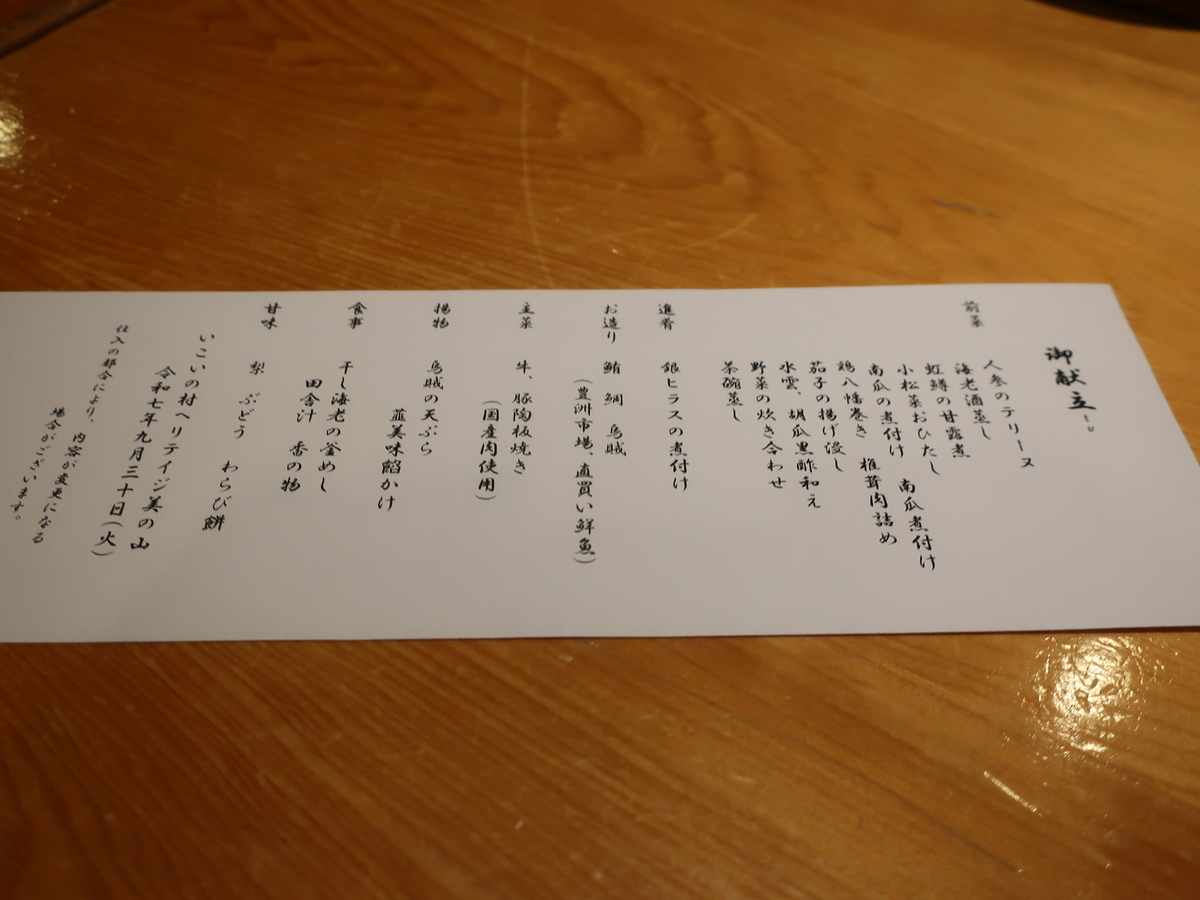 御献立
前菜
人参のテリーヌ
海老酒蒸し
虹鱒の甘露煮
小松菜おひたし 南瓜煮付け
南瓜の煮付け 椎茸肉詰め
鶏八幡巻き
茄子の揚げ浸し
水雲、胡瓜黒酢和え
野菜の炊き合わせ
茶碗蒸し
進肴 銀ヒラスの煮付け
お造り 鮪 鯛 烏賊
(豊洲市場、直買い鮮魚)
主菜 牛、豚陶板焼き
(国産肉使用)
揚物 烏賊の天ぷら
韮美味餡かけ
食事 干し海老の釜めし
田舎汁 香の物
甘味 梨 ぶどう わらび餅
いこいの村ヘリテイジ美の山
令和七年九月三十日(火)
仕入の都合により、内容が変更になる
場合がございます。